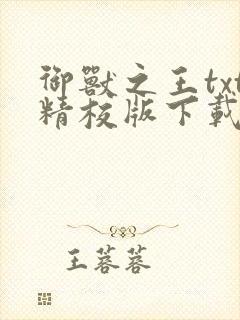 御獸之王txt
精校版下載
王蓉蓉